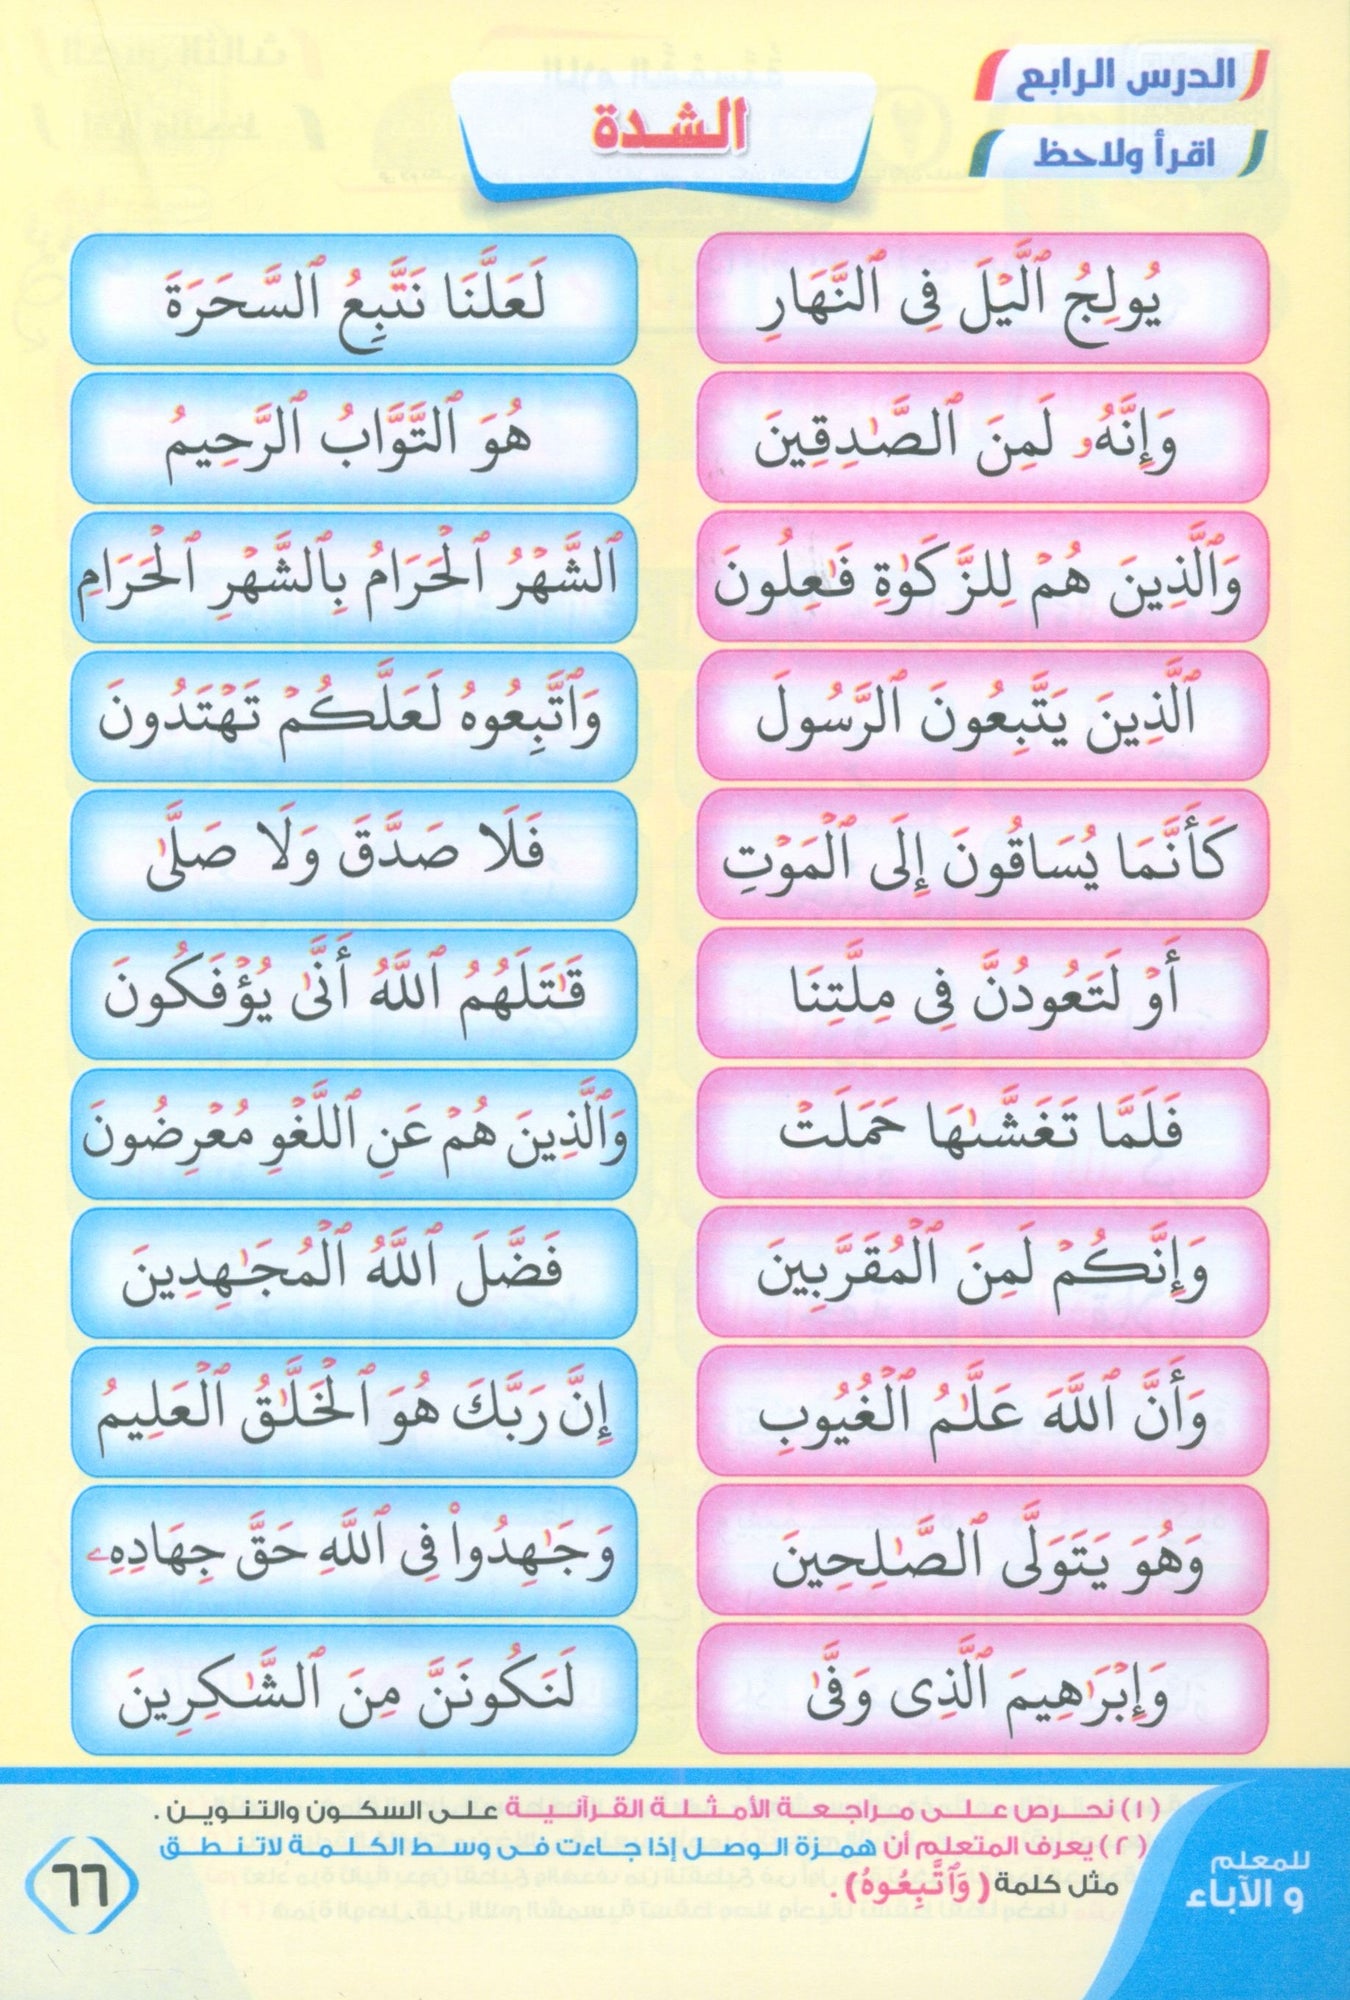 الدرس الرابع
الشدة
اقرأ ولاحظ
يُولِجُ ٱلَّيْلَ فِى ٱلنَّهَارِ
لَعَلَّنَا نَتَّبِعُ ٱلسَّحَرَةَ
وَإِنَّهُۥ لَمِنَ ٱلصَّـٰدِقِينَ
هُوَ ٱلتَّوَّابُ ٱلرَّحِيمُ
وَٱلَّذِينَ هُمْ لِلزَّكَوٰةِ فَـٰعِلُونَ
ٱلشَّهْرُ ٱلْحَرَامُ بِٱلشَّهْرِ ٱلْحَرَامِ
ٱلَّذِينَ يَتَّبِعُونَ ٱلرَّسُولَ
وَٱتَّبِعُوهُ لَعَلَّكُمْ تَهْتَدُونَ
كَأَنَّمَا يُسَاقُونَ إِلَى ٱلْمَوْتِ
فَلَا صَدَّقَ وَلَا صَلَّىٰ
أَوْ لَتَعُودُنَّ فِى مِلَّتِنَا
قَـٰتَلَهُمُ ٱللَّهُ أَنَّىٰ يُؤْفَكُونَ
فَلَمَّا تَغَشَّىٰهَا حَمَلَتْ
وَٱلَّذِينَ هُمْ عَنِ ٱللَّغْوِ مُعْرِضُونَ
وَإِنَّكُمْ لَمِنَ ٱلْمُقَرَّبِينَ
فَضَّلَ ٱللَّهُ ٱلْمُجَـٰهِدِينَ
وَأَنَّ ٱللَّهَ عَلَّـٰمُ ٱلْغُيُوبِ
إِنَّ رَبَّكَ هُوَ ٱلْخَلَّـٰقُ ٱلْعَلِيمُ
وَهُوَ يَتَوَلَّى ٱلصَّـٰلِحِينَ
وَجَـٰهِدُوا۟ فِى ٱللَّهِ حَقَّ جِهَادِهِۦ
وَإِبْرَٰهِيمَ ٱلَّذِى وَفَّىٰ
لَنَكُونَنَّ مِنَ ٱلشَّـٰكِرِينَ
للمعلم
و الآباء
(١) نحرص على مراجعة الأمثلة القرآنية على السكون والتنوين .
(٢) يعرف المتعلم أن همزة الوصل إذا جاءت فى وسط الكلمة لاتنطق
مثل كلمة (وَٱتَّبِعُوهُ) .
٦٦